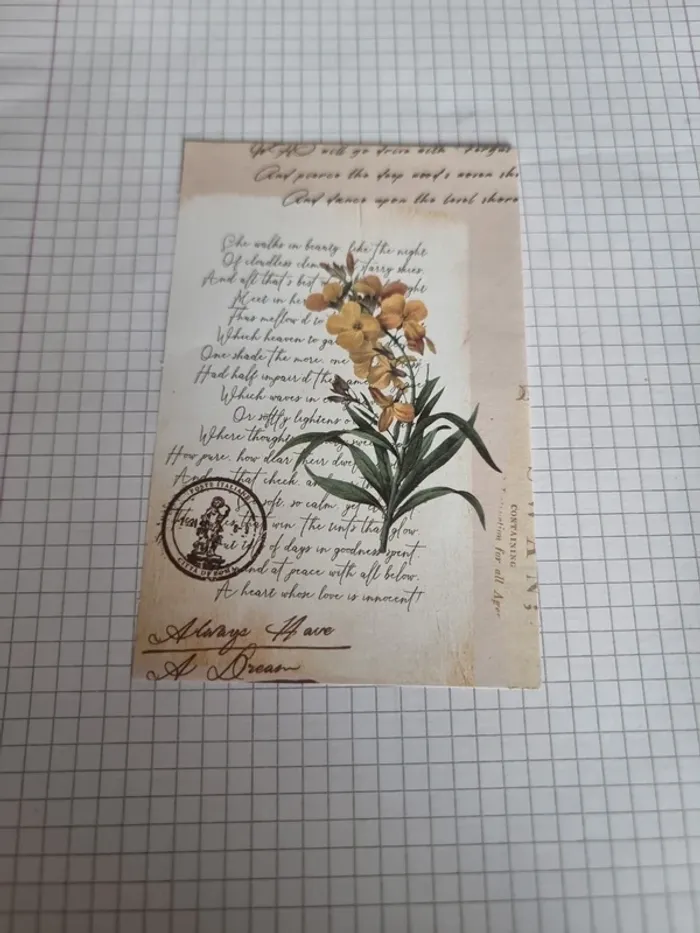 will go drive with
And pierce the deep wood's woven sh
And dance upon the level shore
She walks in beauty, like the night
Of cloudless starry skies;
And all that's best
Meet in her
Thus mellow'd to
Which heaven to
One shade the more, one
Had half impair'd the same
Which waves in
Or softly lightens
Where thoughts
How pure, how dear their
And that cheek, and
soft, so calm, yet
win, the tints that glow,
of days in goodness spent,
and at peace with all below,
A heart whose love is innocent!
POSTE ITALIANE
CITTA DI
Always Have
A Dream
CONTAINING
for all Ages